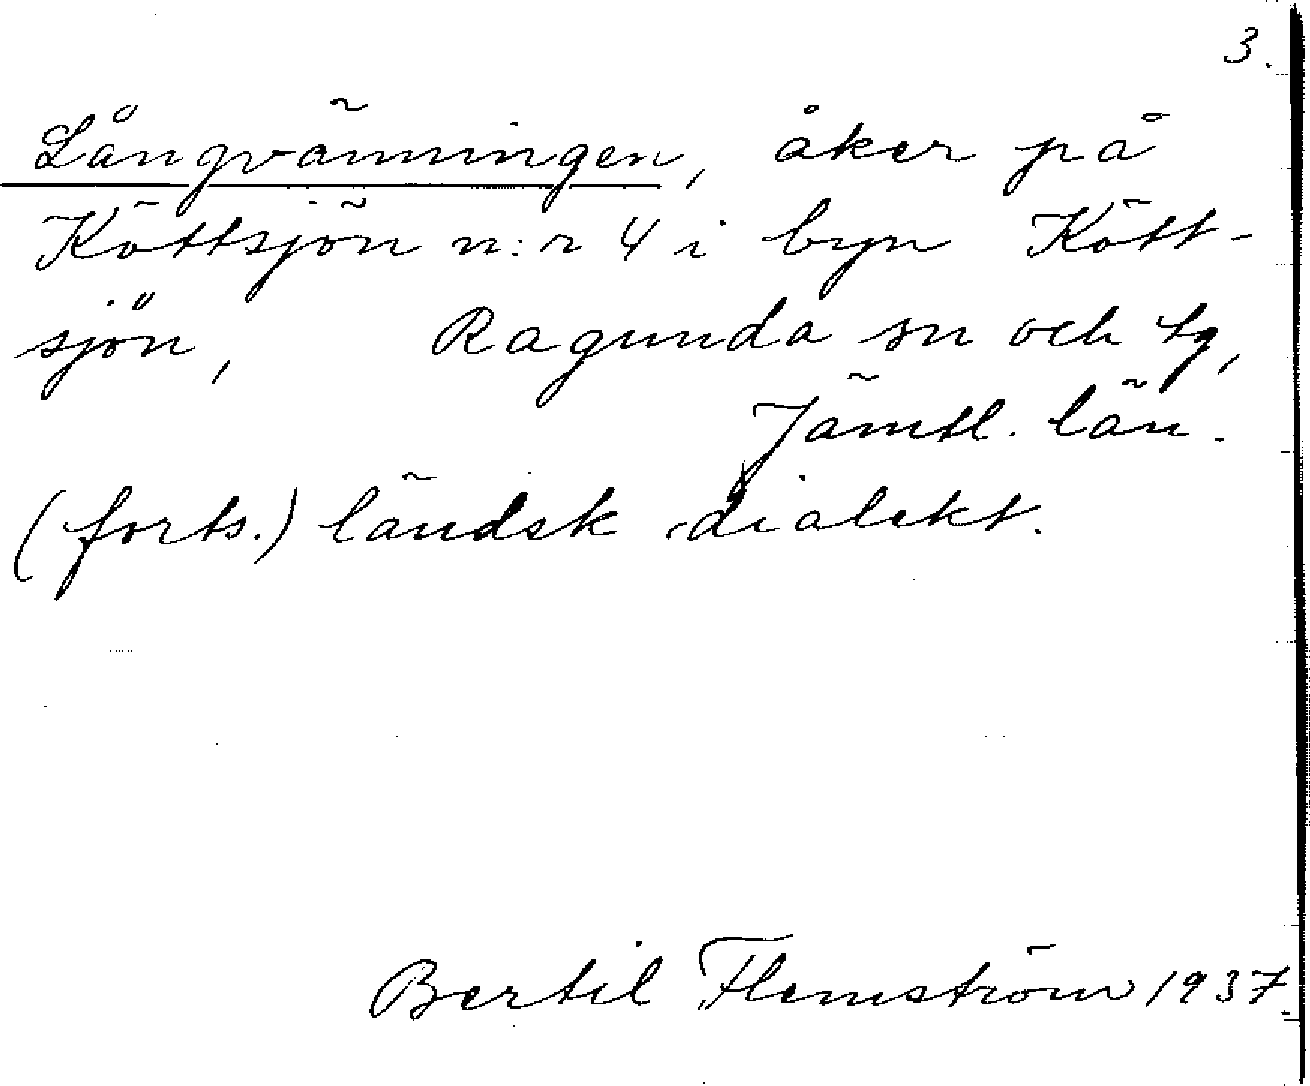 3.
Långvänningen, åker på
Köttsjön n:r 4 i byn Kött-
sjön, Ragunda sn och tg,
Jämtl. län.
(forts.) ländsk dialekt.
Bertil Flemström 1937.